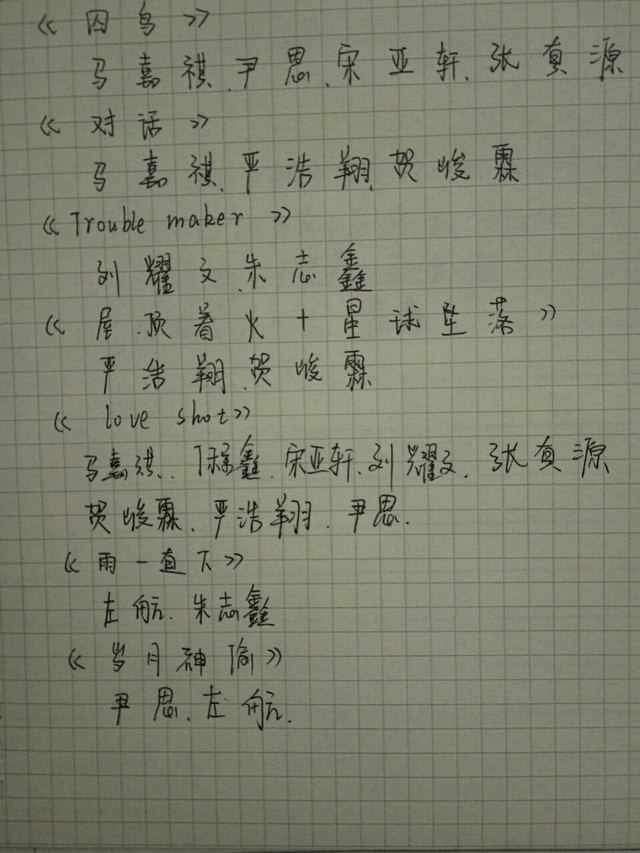 《囚鸟》
马嘉祺、尹思、宋亚轩、张真源
《对话》
马嘉祺、严浩翔、贺峻霖
《Trouble maker》
刘耀文、朱志鑫
《屋顶着火+星球坠落》
严浩翔、贺峻霖
《love shot》
马嘉祺、丁程鑫、宋亚轩、刘耀文、张真源
贺峻霖、严浩翔、尹思.
《雨一直下》
左航、朱志鑫
《岁月神偷》
尹思、左航.